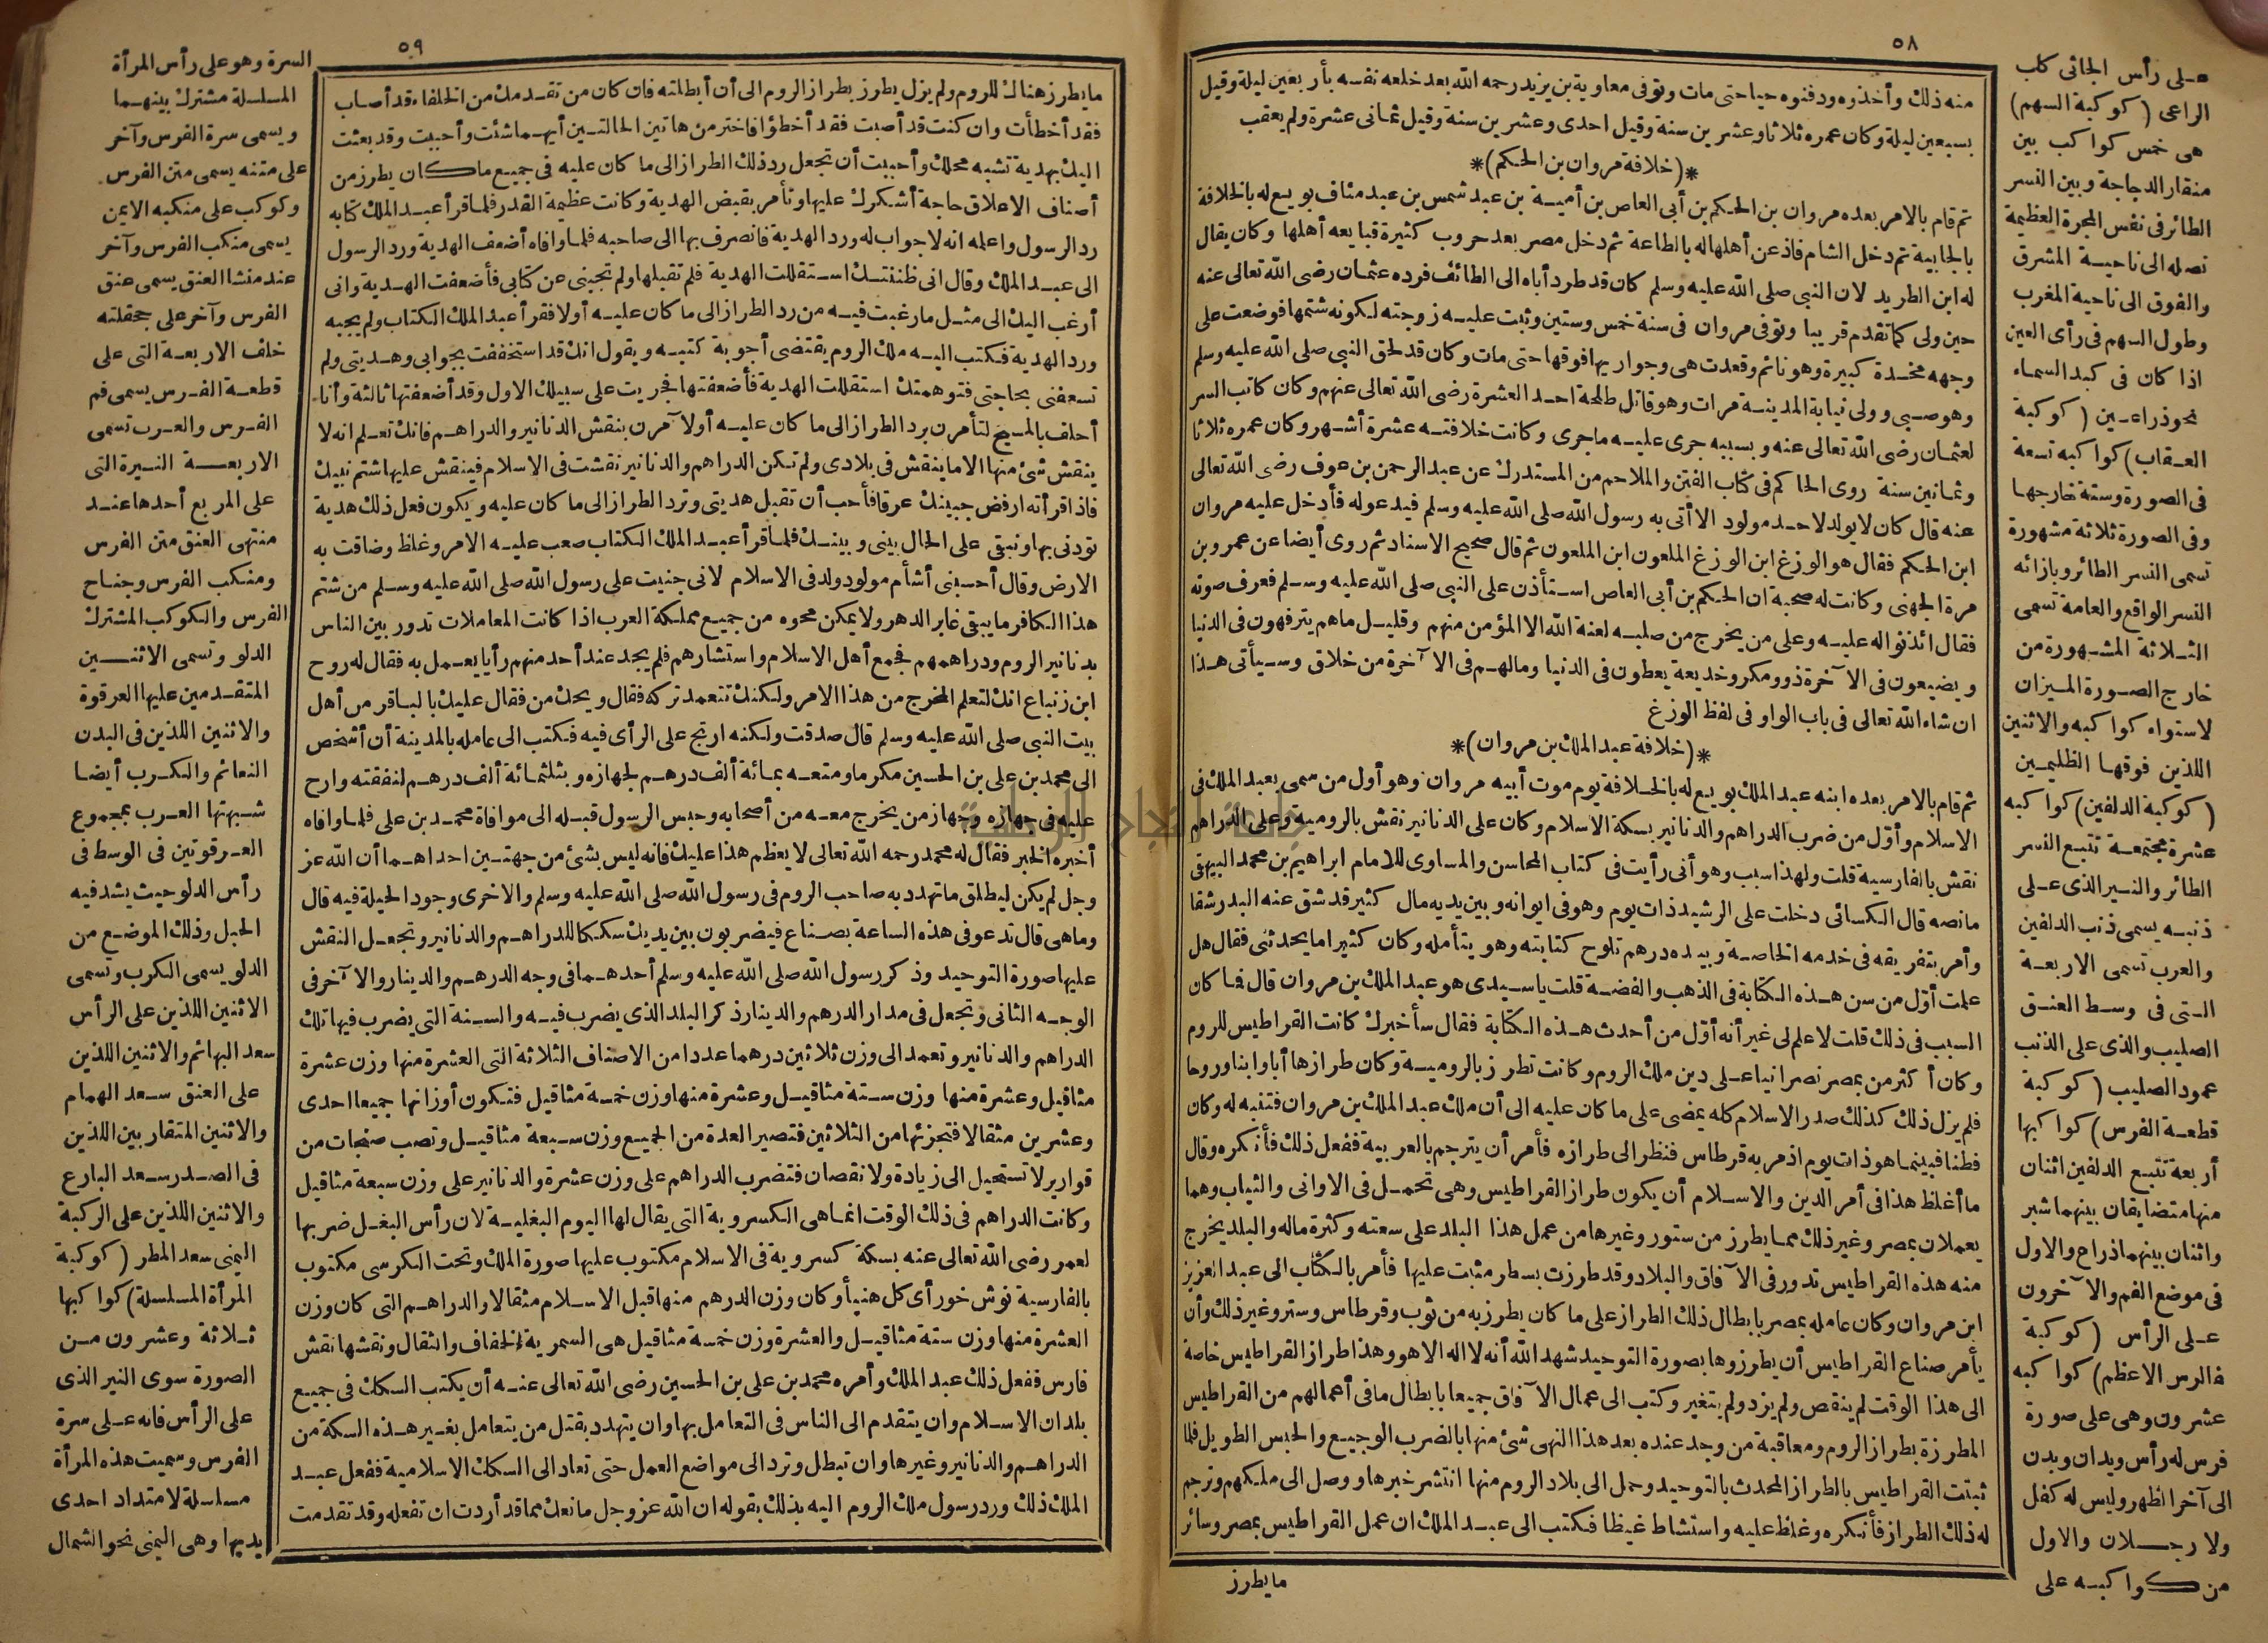 ٥٨
منه ذلك وأخذوه ودفنوه حيا حتى مات وتوفى معاوية بن يزيد رحمه الله بعد خلعه نفسه بأربعين ليلة وقيل
بسبعين ليلة وكان عمره ثلاثا وعشرين سنة وقيل احدى وعشرين سنة وقيل ثمانى عشرة ولم يعقب
*(خلافة مروان بن الحكم)*
ثم قام بالامر بعده مروان بن الحكم بن أبى العاص بن أمية بن عبد شمس بن عبد مناف بويع له بالخلافة
بالجابية ثم دخل الشام فاذعن أهلها له بالطاعة ثم دخل مصر بعد حروب كثيرة فبايعه أهلها وكان يقال
له ابن الطريد لان النبى صلى الله عليه وسلم كان قد طرد أباه الى الطائف فرده عثمان رضى الله تعالى عنه
حين ولى كما تقدم قريبا وتوفى مروان فى سنة خمس وستين وثبت عليه زوجته لكونه شتمها فوضعت على
وجهه مخدة كبيرة وهو نائم وقعدت هى وجواريها فوقها حتى مات وكان قد لحق النبى صلى الله عليه وسلم
وهو صبى وولى نيابة المدينة مرات وهو قاتل طلحة احد العشرة رضى الله تعالى عنهم وكان كاتب السر
لعثمان رضى الله تعالى عنه وبسببه جرى عليه ما جرى وكانت خلافته عشرة أشهر وكان عمره ثلاثا
وثمانين سنة روى الحاكم فى كتاب الفتن والملاحم من المستدرك عن عبد الرحمن بن عوف رضى الله تعالى
عنه قال كان لا يولد لاحد مولود الا أتى به رسول الله صلى الله عليه وسلم فيدعو له فأدخل عليه مروان
ابن الحكم فقال هو الوزغ ابن الوزغ الملعون ابن الملعون ثم قال صحيح الاسناد ثم روى أيضا عن عمرو بن
مرة الجهنى وكانت له صحبة ان الحكم بن أبى العاص استأذن على النبى صلى الله عليه وسلم فعرف صوته
فقال ائذنوا له عليه وعلى من يخرج من صلبه لعنة الله الا المؤمن منهم وقليل ما هم يترفهون فى الدنيا
ويضيعون فى الآخرة ذوو مكر وخديعة يعطون فى الدنيا وما لهم فى الآخرة من خلاق وسيأتى هذا
ان شاء الله تعالى فى باب الواو فى لفظ الوزغ
*(خلافة عبد الملك بن مروان)*
ثم قام بالامر بعده ابنه عبد الملك بويع له بالخلافة يوم موت أبيه مروان وهو أول من سمى بعبد الملك فى
الاسلام وأول من ضرب الدراهم والدنانير بسكة الاسلام وكان على الدنانير نقش بالرومية وعلى الدراهم
نقش بالفارسية قلت ولهذا سبب وهو أنى رأيت فى كتاب المحاسن والمساوى للامام ابراهيم بن محمد البيهقى
ما نصه قال الكسائى دخلت على الرشيد ذات يوم وهو فى ايوانه وبين يديه مال كثير قد شق عنه البدر شقا
وأمر بتفريقه فى خدمه الخاصة وبيده درهم تلوح كتابته وهو يتأمله وكان كثيرا ما يحدثنى فقال هل
علمت أول من سن هذه الكتابة فى الذهب والفضة قلت يا سيدى هو عبد الملك بن مروان قال فما كان
السبب فى ذلك قلت لا علم لى غير أنه أول من أحدث هذه الكتابة فقال سأخبرك كانت القراطيس للروم
وكان أكثر من بمصر نصرانيا على دين ملك الروم وكانت تطرز بالرومية وكان طرازها أبا وابنا وروحا
فلم يزل ذلك كذلك صدر الاسلام كله يمضى على ما كان عليه الى أن ملك عبد الملك بن مروان فتنبه له وكان
فطنا فبينما هو ذات يوم اذ مر به قرطاس فنظر الى طرازه فأمر أن يترجم بالعربية ففعل ذلك فأنكره وقال
ما أغلظ هذا فى أمر الدين والاسلام أن يكون طراز القراطيس وهى تحمل فى الاوانى والثياب وهما
يعملان بمصر وغير ذلك مما يطرز من ستور وغيرها من عمل هذا البلد على سعته وكثرة ماله والبلد يخرج
منه هذه القراطيس تدور فى الآفاق والبلاد وقد طرزت بسطر مثبت عليها فأمر بالكتاب الى عبد العزيز
ابن مروان وكان عامله بمصر بابطال ذلك الطراز على ما كان يطرز به من ثوب وقرطاس وستر وغير ذلك وأن
يأمر صناع القراطيس أن يطرزوها بصورة التوحيد شهد الله أنه لا اله الا هو وهذا طراز القراطيس خاصة
الى هذا الوقت لم ينقص ولم يزد ولم يتغير وكتب الى عمال الآفاق جميعا بابطال ما فى أعمالهم من القراطيس
المطرزة بطراز الروم ومعاقبة من وجد عنده بعد هذا النهى شئ منها بالضرب الوجيع والحبس الطويل فلما
ثبتت القراطيس بالطراز المحدث بالتوحيد وحمل الى بلاد الروم منها انتشر خبرها ووصل الى ملكهم وترجم
له ذلك الطراز فأنكره وغلظ عليه واستشاط غيظا فكتب الى عبد الملك ان عمل القراطيس بمصر وسائر
ما يطرز
على رأس الجاثى كلب
الراعى (كوكبة السهم)
هى خمس كواكب بين
منقار الدجاجة وبين النسر
الطائر فى نفس المجرة العظيمة
نصله الى ناحية المشرق
والفوق الى ناحية المغرب
وطول السهم فى رأى العين
اذا كان فى كبد السماء
نحو ذراعين (كوكبة
العقاب) كواكبه تسعة
فى الصورة وستة خارجها
وفى الصورة ثلاثة مشهورة
تسمى النسر الطائر وبازائه
النسر الواقع والعامة تسمى
الثلاثة المشهورة من
خارج الصورة الميزان
لاستواء كواكبه والاثنين
اللذين فوقها الظليمين
(كوكبة الدلفين) كواكبه
عشرة مجتمعة تتبع النسر
الطائر والنير الذى على
ذنبه يسمى ذنب الدلفين
والعرب تسمى الاربعة
التى فى وسط العنق
الصليب والذى على الذنب
عمود الصليب (كوكبة
قطعة الفرس) كواكبها
أربعة تتبع الدلفين اثنان
منها متضايقان بينهما شبر
واثنان بينهما ذراع والاول
فى موضع الفم والآخرون
على الرأس (كوكبة
الفرس الاعظم) كواكبه
عشرون وهى على صورة
فرس له رأس ويدان وبدن
الى آخر الظهر وليس له كفل
ولا رجلان والاول
من كواكبه على
٥٩
ما يطرز هناك للروم ولم يزل يطرز بطراز الروم الى أن أبطلته فان كان من تقدمك من الخلفاء قد أصاب
فقد أخطأت وان كنت قد أصبت فقد أخطؤا فاختر من هاتين الحالتين أيهما شئت وأحببت وقد بعثت
اليك بهدية تشبه محلك وأحببت أن تجعل رد ذلك الطراز الى ما كان عليه فى جميع ما كان يطرز من
أصناف الاعلاق حاجة أشكرك عليها وتأمر بقبض الهدية وكانت عظيمة القدر فلما قرأ عبد الملك كتابه
رد الرسول واعلمه انه لا جواب له ورد الهدية فانصرف بها الى صاحبه فلما وافاه أضعف الهدية ورد الرسول
الى عبد الملك وقال انى ظننتك استقللت الهدية فلم تقبلها ولم تجبنى عن كتابى فأضعفت الهدية وانى
أرغب اليك الى مثل ما رغبت فيه من رد الطراز الى ما كان عليه أولا فقرأ عبد الملك الكتاب ولم يجبه
ورد الهدية فكتب اليه ملك الروم يقتضى أجوبة كتبه ويقول انك قد استخففت بجوابى وهديتى ولم
تسعفنى بحاجتى فتوهمتك استقللت الهدية فأضعفتها فجريت على سبيلك الاول وقد أضعفتها ثالثة وأنا
أحلف بالمسيح لتأمرن برد الطراز الى ما كان عليه أولا آمرن بنقش الدنانير والدراهم فانك تعلم انه لا
ينقش شئ منها الا ما ينقش فى بلادى ولم تكن الدراهم والدنانير نقشت فى الاسلام فينقش عليها شتم نبيك
فاذا قرأته ارفض جبينك عرقا فأحب أن تقبل هديتى وترد الطراز الى ما كان عليه ويكون فعل ذلك هدية
تودنى بها ونبقى على الحال بينى وبينك فلما قرأ عبد الملك الكتاب صعب عليه الامر وغلظ وضاقت به
الارض وقال أحسبنى أشأم مولود ولد فى الاسلام لانى جنيت على رسول الله صلى الله عليه وسلم من شتم
هذا الكافر ما يبقى غابر الدهر ولا يمكن محوه من جميع مملكة العرب اذا كانت المعاملات تدور بين الناس
بدنانير الروم ودراهمهم فجمع أهل الاسلام واستشارهم فلم يجد عند أحد منهم رأيا يعمل به فقال له روح
ابن زنباع انك لتعلم المخرج من هذا الامر ولكنك تتعمد تركه فقال ويحك من فقال عليك بالباقر من أهل
بيت النبى صلى الله عليه وسلم قال صدقت ولكنه ارتج على الرأى فيه فكتب الى عامله بالمدينة أن أشخص
الى محمد بن على بن الحسين مكرما ومتعه بمائة ألف درهم لجهازه وبثلثمائة ألف درهم لنفقته وارح
عليه فى جهازه وجهاز من يخرج معه من أصحابه وحبس الرسول قبله الى موافاة محمد بن على فلما وافاه
أخبره الخبر فقال له محمد رحمه الله تعالى لا يعظم هذا عليك فانه ليس بشئ من جهتين احداهما أن الله عز
وجل لم يكن ليطلق ما تهدد به صاحب الروم فى رسول الله صلى الله عليه وسلم والاخرى وجود الحيلة فيه قال
وما هى قال تدعو فى هذه الساعة بصناع فيضربون بين يديك سككا للدراهم والدنانير وتجعل النقش
عليها صورة التوحيد وذكر رسول الله صلى الله عليه وسلم أحدهما فى وجه الدرهم والدينار والآخر فى
الوجه الثانى وتجعل فى مدار الدرهم والدينار ذكر البلد الذى يضرب فيه والسنة التى يضرب فيها تلك
الدراهم والدنانير وتعمد الى وزن ثلاثين درهما عددا من الاصناف الثلاثة التى العشرة منها وزن عشرة
مثاقيل وعشرة منها وزن ستة مثاقيل وعشرة منها وزن خمسة مثاقيل فتكون أوزانها جميعا احدى
وعشرين مثقالا فتجزئها من الثلاثين فتصير العدة من الجميع وزن سبعة مثاقيل وتصب صنجات من
قوارير لا تستحيل الى زيادة ولا نقصان فتضرب الدراهم على وزن عشرة والدنانير على وزن سبعة مثاقيل
وكانت الدراهم فى ذلك الوقت انما هى الكسروية التى يقال لها اليوم البغلية لان رأس البغل ضربها
لعمر رضى الله تعالى عنه بسكة كسروية فى الاسلام مكتوب عليها صورة الملك وتحت الكرسى مكتوب
بالفارسية نوش خور أى كل هنيأ وكان وزن الدرهم منها قبل الاسلام مثقالا والدراهم التى كان وزن
العشرة منها وزن ستة مثاقيل والعشرة وزن خمسة مثاقيل هى السمرية الخفاف والثقال ونقشها نقش
فارس ففعل ذلك عبد الملك وأمره محمد بن على بن الحسين رضى الله تعالى عنه أن يكتب السكك فى جميع
بلدان الاسلام وان يتقدم الى الناس فى التعامل بها وان يتهدد بقتل من يتعامل بغير هذه السكة من
الدراهم والدنانير وغيرها وان تبطل وترد الى مواضع العمل حتى تعاد الى السكك الاسلامية ففعل عبد
الملك ذلك ورد رسول ملك الروم اليه بذلك بقوله ان الله عز وجل مانعك مما قد أردت ان تفعله وقد تقدمت
السرة وهو على رأس المرأة
المسلسلة مشترك بينهما
ويسمى سرة الفرس وآخر
على متنه يسمى متن الفرس
وكوكب على منكبه الايمن
يسمى منكب الفرس وآخر
عند منشا العنق يسمى عنق
الفرس وآخر على جحفلته
خلف الاربعة التى على
قطعة الفرس يسمى فم
الفرس والعرب تسمى
الاربعة النيرة التى
على المربع أحدها عند
منتهى العنق متن الفرس
ومنكب الفرس وجناح
الفرس والكوكب المشترك
الدلو وتسمى الاثنين
المتقدمين عليها العرقوة
والاثنين اللذين فى البدن
النعائم والكرب أيضا
شبهتها العرب بمجموع
العرقوتين فى الوسط فى
رأس الدلو حيث يشد فيه
الحبل وذلك الموضع من
الدلو يسمى الكرب وتسمى
الاثنين اللذين على الرأس
سعد البهائم والاثنين اللذين
على العنق سعد الهمام
والاثنين المتقاربين اللذين
فى الصدر سعد البارع
والاثنين اللذين على الركبة
اليمنى سعد المطر (كوكبة
المرأة المسلسلة) كواكبها
ثلاثة وعشرون من
الصورة سوى النير الذى
على الرأس فانه على سرة
الفرس وسميت هذه المرأة
مسلسلة لامتداد احدى
يديها وهى اليمنى نحو الشمال